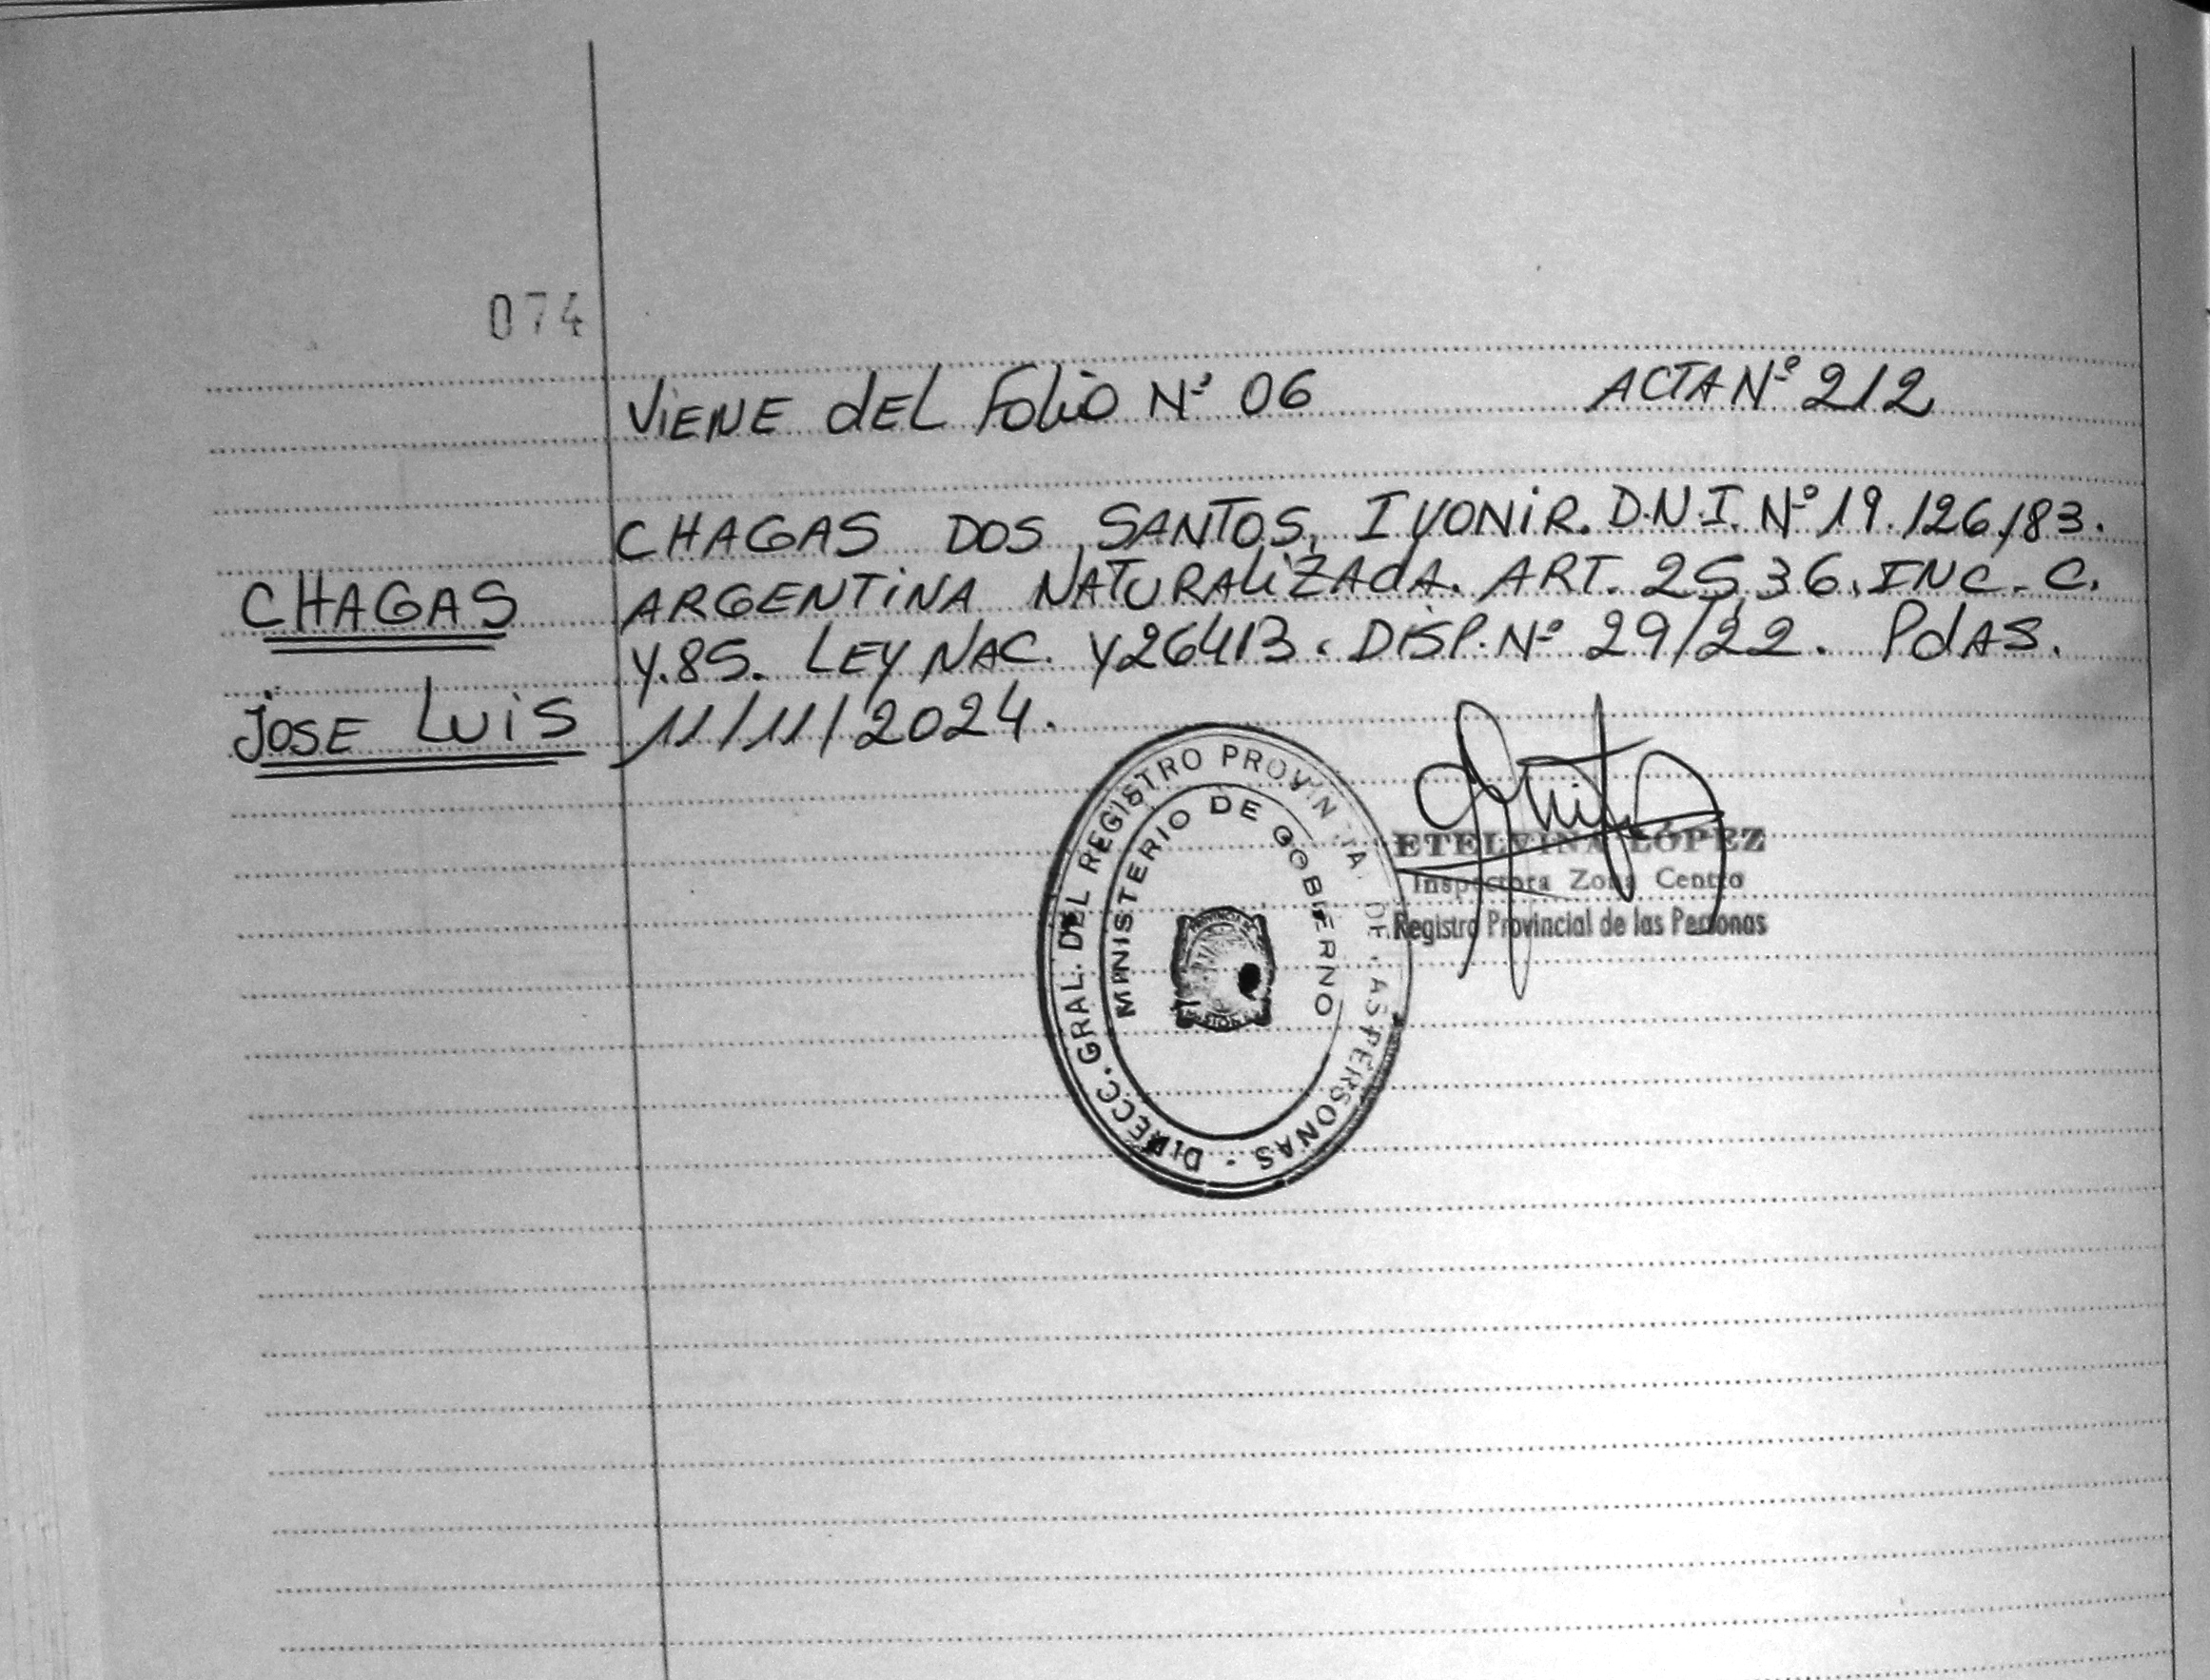 074
VIENE dEL FOLIO Nº 06 ACTA Nº 212
CHAGAS DOS SANTOS, IVONIR. D.N.I. Nº 19.126.183.
CHAGAS
ARGENTINA NATURALIZADA. ART. 25, 36. INC. C.
Y.85. LEY NAC. Y26413. DISP. Nº 29/22. PdAS.
JOSE LUIS
11/11/2024.
DIRECC. GRAL. DEL REGISTRO PROVINTA. DE LAS PERSONAS -
MINISTERIO DE GOBIERNO
ETELVINA LÓPEZ
Inspectora Zona Centro
Registro Provincial de las Personas